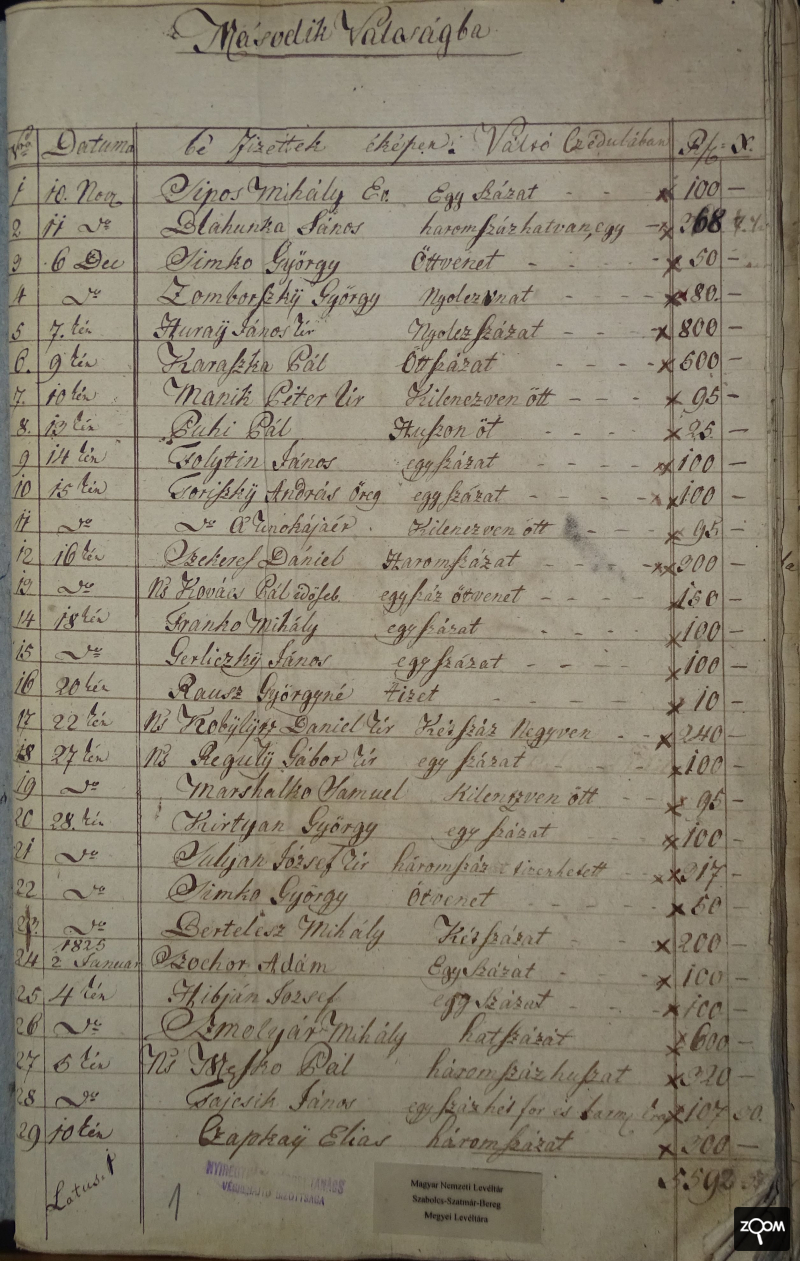 Második Válaságba
Datuma bé fizették éképen: Váltó Czédulában Rf. X.
1 10. Nov Sipos Mihály Er. Egy százat - - x 100 -
2 11 Do Dlahunka János háromszázhatvan,egy - x 368
3 6 Dec Simko György Öttvenet - - - - x 50 -
4 Do Zomborszkÿ György Nyolczvanat - - - x 80. -
5 7. tén Huraÿ János Úr Nyolcz százat - - - x 800 -
6. 9 tén Karaszka Pál Öttszázat - - - x 500 -
7. 10 tén Manik Péter Úr Kilenczven ött - - - x 95 -
8. 12 tén Puhi Pál Huszon öt - - - - x 25 -
9 14 tén Folytin János egy százat - - - - x 100 -
10 15 tén Toriszkÿ András öreg egy százat - - - - x 100 -
11 Do Do A Unokájáér. Kilenczven ött - - - x 95 -
12 16 tén Szekeres Dániel Háromszázat - - - xx 300 -
13 Do Ns Kovács Pál idöseb. egyszáz öttvenet - - - x 150 -
14 18 tén Franko Mihály egy százat - - - x 100 -
15 Do Gerliczkÿ János egy százat - - - - x 100 -
16 20 tén Rausz Györgyné tizet - - - - x 10 -
17 22 tén Ns Daniel Úr Kétszáz Negyven - - x 240 -
18 27 tén Ns Regulÿ Gábor Úr egy százat - - - x 100 -
19 Do Marshalko Samuel Kilenczven ött - - x 95 -
20 28. tén Kirtyan György egy százat - - - x 100 -
21 Do Suljan József Úr háromszáz tizenhetett - - xx 317 -
22 Do Simko György Ötvenet - - - - x 50 -
23. Do Bertelesz Mihály Kétszázat - - - x 200 -
1825
24 2 Januar Szochor Adám Egy százat - - - x 100 -
25 4 tén Hibján Jozsef egy százat - - - x 100 -
26 Do Smolyár Mihály hatszázat - - x 600 -
27 5 tén Ns Mesko Pál háromszáz huszat - - x 320 -
28 Do Fajcsik János egy száz hét for és x 107 30.
29 10 tén Czapkaÿ Elias háromszázat - - x 300 -
Latus. 5592
1
Magyar Nemzeti Levéltár
Szabolcs-Szatmár-Bereg
Megyei Levéltára
ZOOM